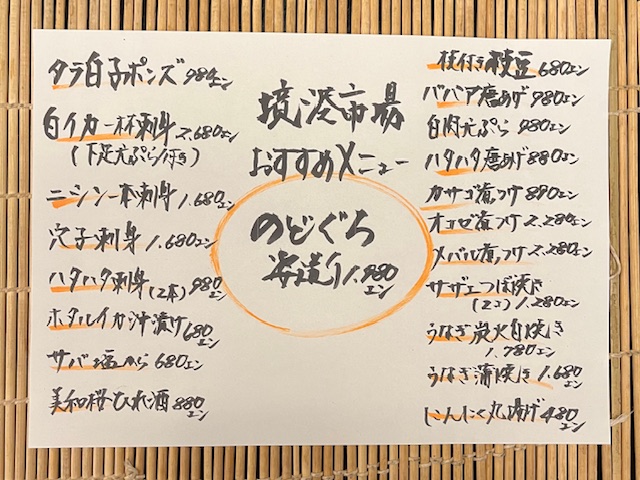 タラ白子ポンズ 980エン
白イカ一杯刺身 2,680エン
(下足天ぷら付き)
ニシン一本刺身 1,680エン
穴子刺身 1,680エン
ハタハタ刺身(2本) 980エン
ホタルイカ沖漬け 680エン
サバ塩から 680エン
美和桜ひれ酒 880エン
境港市場
おすすめメニュー
のどぐろ
姿造り 1,980エン
枝付き枝豆 680エン
ババア唐あげ 980エン
白肉天ぷら 980エン
ハタハタ唐あげ 880エン
カサゴ煮つけ 890エン
オコゼ煮つけ 2,280エン
メバル煮つけ 2,280エン
サザエつぼ焼き
(2コ) 1,280エン
うなぎ炭火白焼き
1,780エン
うなぎ蒲焼き 1,680エン
にんにく丸揚げ 480エン